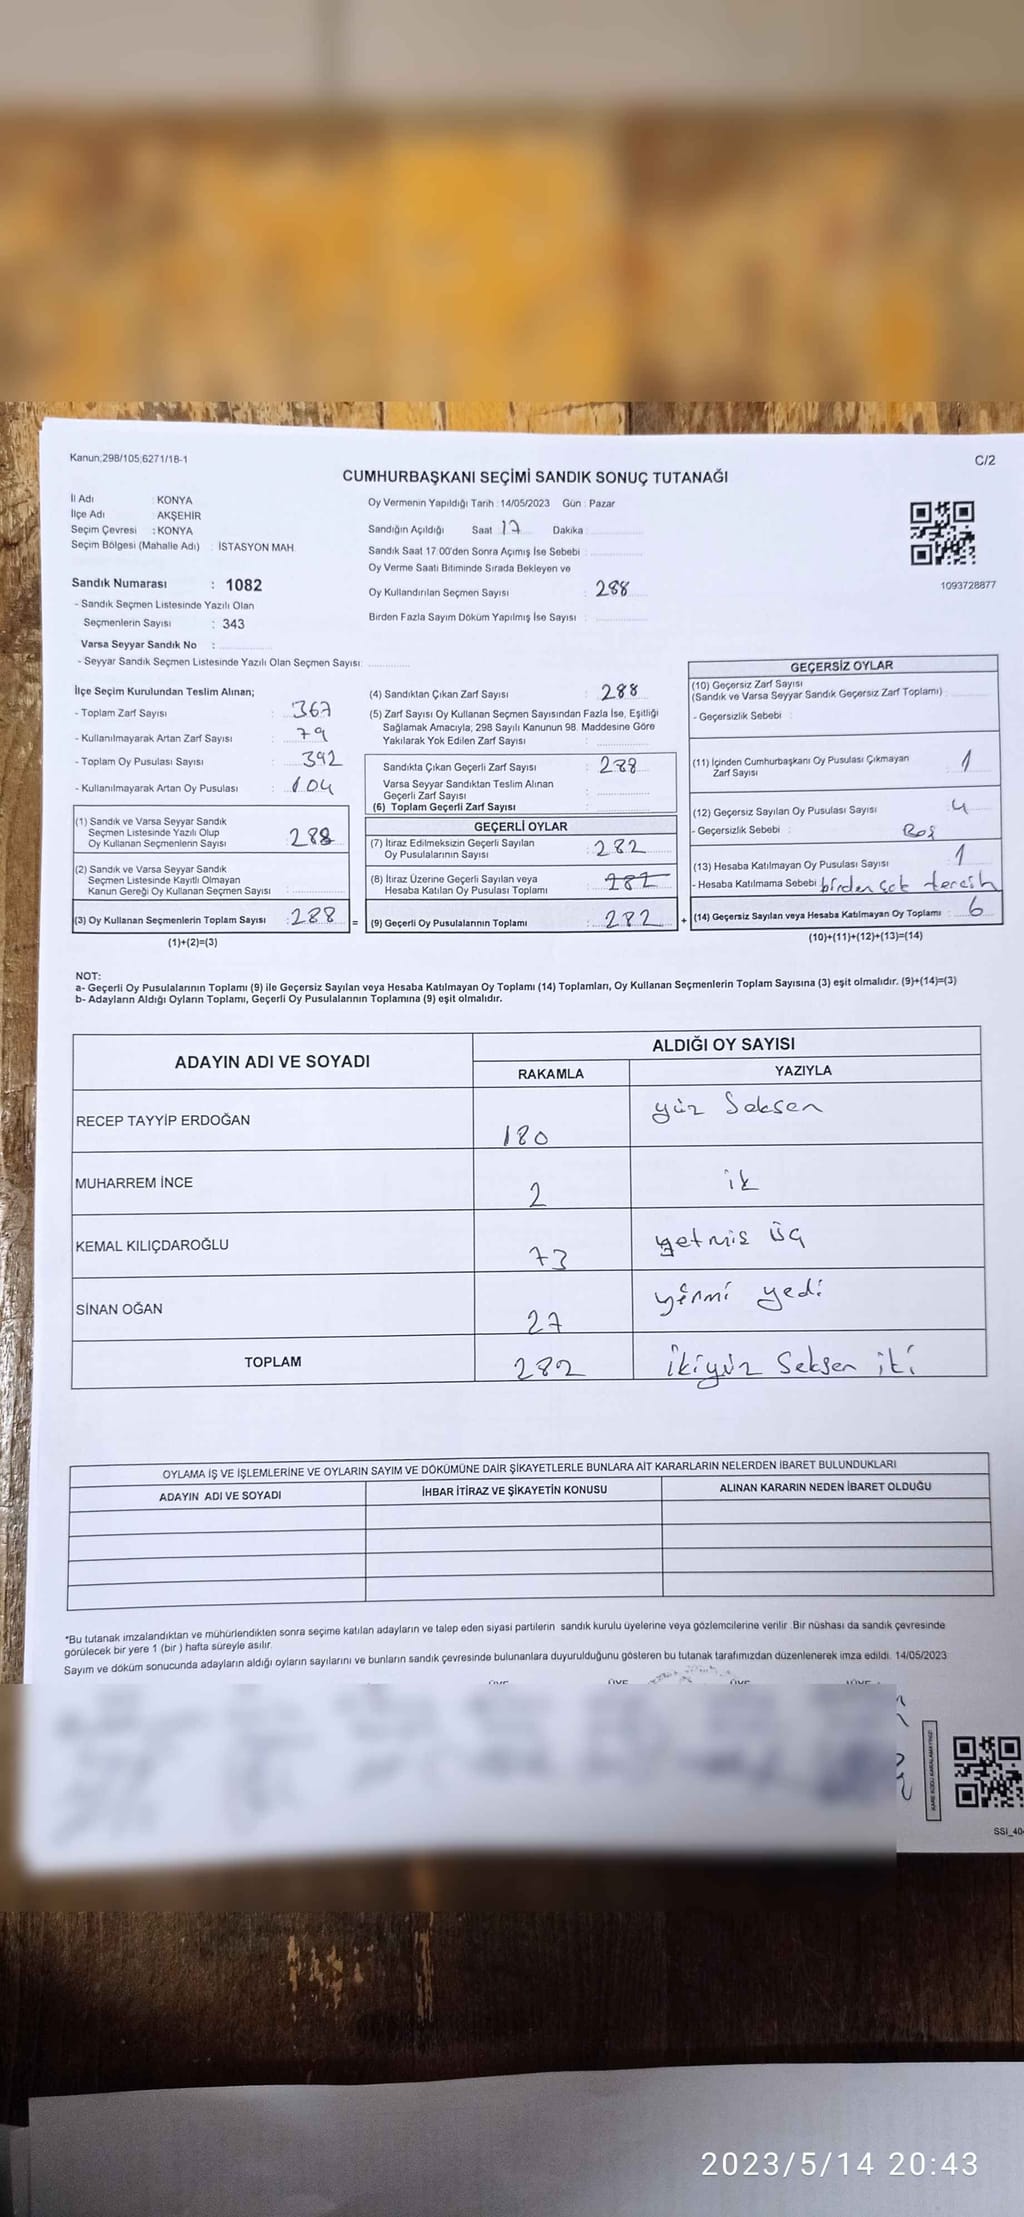 Kanun;298/105;6271/18-1
C/2
CUMHURBAŞKANI SEÇİMİ SANDIK SONUÇ TUTANAĞI
İl Adı : KONYA
İlçe Adı : AKŞEHİR
Seçim Çevresi : KONYA
Seçim Bölgesi (Mahalle Adı) : İSTASYON MAH.
Sandık Numarası : 1082
- Sandık Seçmen Listesinde Yazılı Olan
Seçmenlerin Sayısı : 343
Varsa Seyyar Sandık No :
- Seyyar Sandık Seçmen Listesinde Yazılı Olan Seçmen Sayısı:
Oy Vermenin Yapıldığı Tarih : 14/05/2023 Gün : Pazar
Sandığın Açıldığı Saat 17 Dakika :
Sandık Saat 17:00'den Sonra Açımış İse Sebebi :
Oy Verme Saati Bitiminde Sırada Bekleyen ve
Oy Kullandırılan Seçmen Sayısı : 288
Birden Fazla Sayım Döküm Yapılmış İse Sayısı :
1093728877
İlçe Seçim Kurulundan Teslim Alınan;
- Toplam Zarf Sayısı : 367
- Kullanılmayarak Artan Zarf Sayısı : 79
- Toplam Oy Pusulası Sayısı : 392
- Kullanılmayarak Artan Oy Pusulası : 104
(1) Sandık ve Varsa Seyyar Sandık
Seçmen Listesinde Yazılı Olup
Oy Kullanan Seçmenlerin Sayısı : 288
(2) Sandık ve Varsa Seyyar Sandık
Seçmen Listesinde Kayıtlı Olmayan
Kanun Gereği Oy Kullanan Seçmen Sayısı :
(3) Oy Kullanan Seçmenlerin Toplam Sayısı : 288 =
(1)+(2)=(3)
(4) Sandıktan Çıkan Zarf Sayısı : 288
(5) Zarf Sayısı Oy Kullanan Seçmen Sayısından Fazla İse, Eşitliği
Sağlamak Amacıyla; 298 Sayılı Kanunun 98. Maddesine Göre
Yakılarak Yok Edilen Zarf Sayısı :
Sandıkta Çıkan Geçerli Zarf Sayısı : 288
Varsa Seyyar Sandıktan Teslim Alınan
Geçerli Zarf Sayısı :
(6) Toplam Geçerli Zarf Sayısı :
GEÇERLİ OYLAR
(7) İtiraz Edilmeksizin Geçerli Sayılan
Oy Pusulalarının Sayısı : 282
(8) İtiraz Üzerine Geçerli Sayılan veya
Hesaba Katılan Oy Pusulası Toplamı : 282
(9) Geçerli Oy Pusulalarının Toplamı : 282 +
GEÇERSİZ OYLAR
(10) Geçersiz Zarf Sayısı
(Sandık ve Varsa Seyyar Sandık Geçersiz Zarf Toplamı) :
- Geçersizlik Sebebi :
(11) İçinden Cumhurbaşkanı Oy Pusulası Çıkmayan
Zarf Sayısı : 1
(12) Geçersiz Sayılan Oy Pusulası Sayısı : 4
- Geçersizlik Sebebi : Boş
(13) Hesaba Katılmayan Oy Pusulası Sayısı : 1
- Hesaba Katılmama Sebebi : birden çok tercih
(14) Geçersiz Sayılan veya Hesaba Katılmayan Oy Toplamı : 6
(10)+(11)+(12)+(13)=(14)
NOT:
a- Geçerli Oy Pusulalarının Toplamı (9) ile Geçersiz Sayılan veya Hesaba Katılmayan Oy Toplamı (14) Toplamları, Oy Kullanan Seçmenlerin Toplam Sayısına (3) eşit olmalıdır. (9)+(14)=(3)
b- Adayların Aldığı Oyların Toplamı, Geçerli Oy Pusulalarının Toplamına (9) eşit olmalıdır.
ADAYIN ADI VE SOYADI
ALDIĞI OY SAYISI
RAKAMLA YAZIYLA
RECEP TAYYİP ERDOĞAN 180 yüz Seksen
MUHARREM İNCE 2 ik
KEMAL KILIÇDAROĞLU 73 yetmis üç
SİNAN OĞAN 27 yirmi yedi
TOPLAM 282 ikiyüz Seksen iki
OYLAMA İŞ VE İŞLEMLERİNE VE OYLARIN SAYIM VE DÖKÜMÜNE DAİR ŞİKAYETLERLE BUNLARA AİT KARARLARIN NELERDEN İBARET BULUNDUKLARI
ADAYIN ADI VE SOYADI İHBAR İTİRAZ VE ŞİKAYETİN KONUSU ALINAN KARARIN NEDEN İBARET OLDUĞU
*Bu tutanak imzalandıktan ve mühürlendikten sonra seçime katılan adayların ve talep eden siyasi partilerin sandık kurulu üyelerine veya gözlemcilerine verilir. Bir nüshası da sandık çevresinde
görülecek bir yere 1 (bir ) hafta süreyle asılır.
Sayım ve döküm sonucunda adayların aldığı oyların sayılarını ve bunların sandık çevresinde bulunanlara duyurulduğunu gösteren bu tutanak tarafımızdan düzenlenerek imza edildi. 14/05/2023
ÜYE ÜYE ÜYE ÜYE
KARE KODU KARALAMAYINIZ!
SSI_40
2023/5/14 20:43